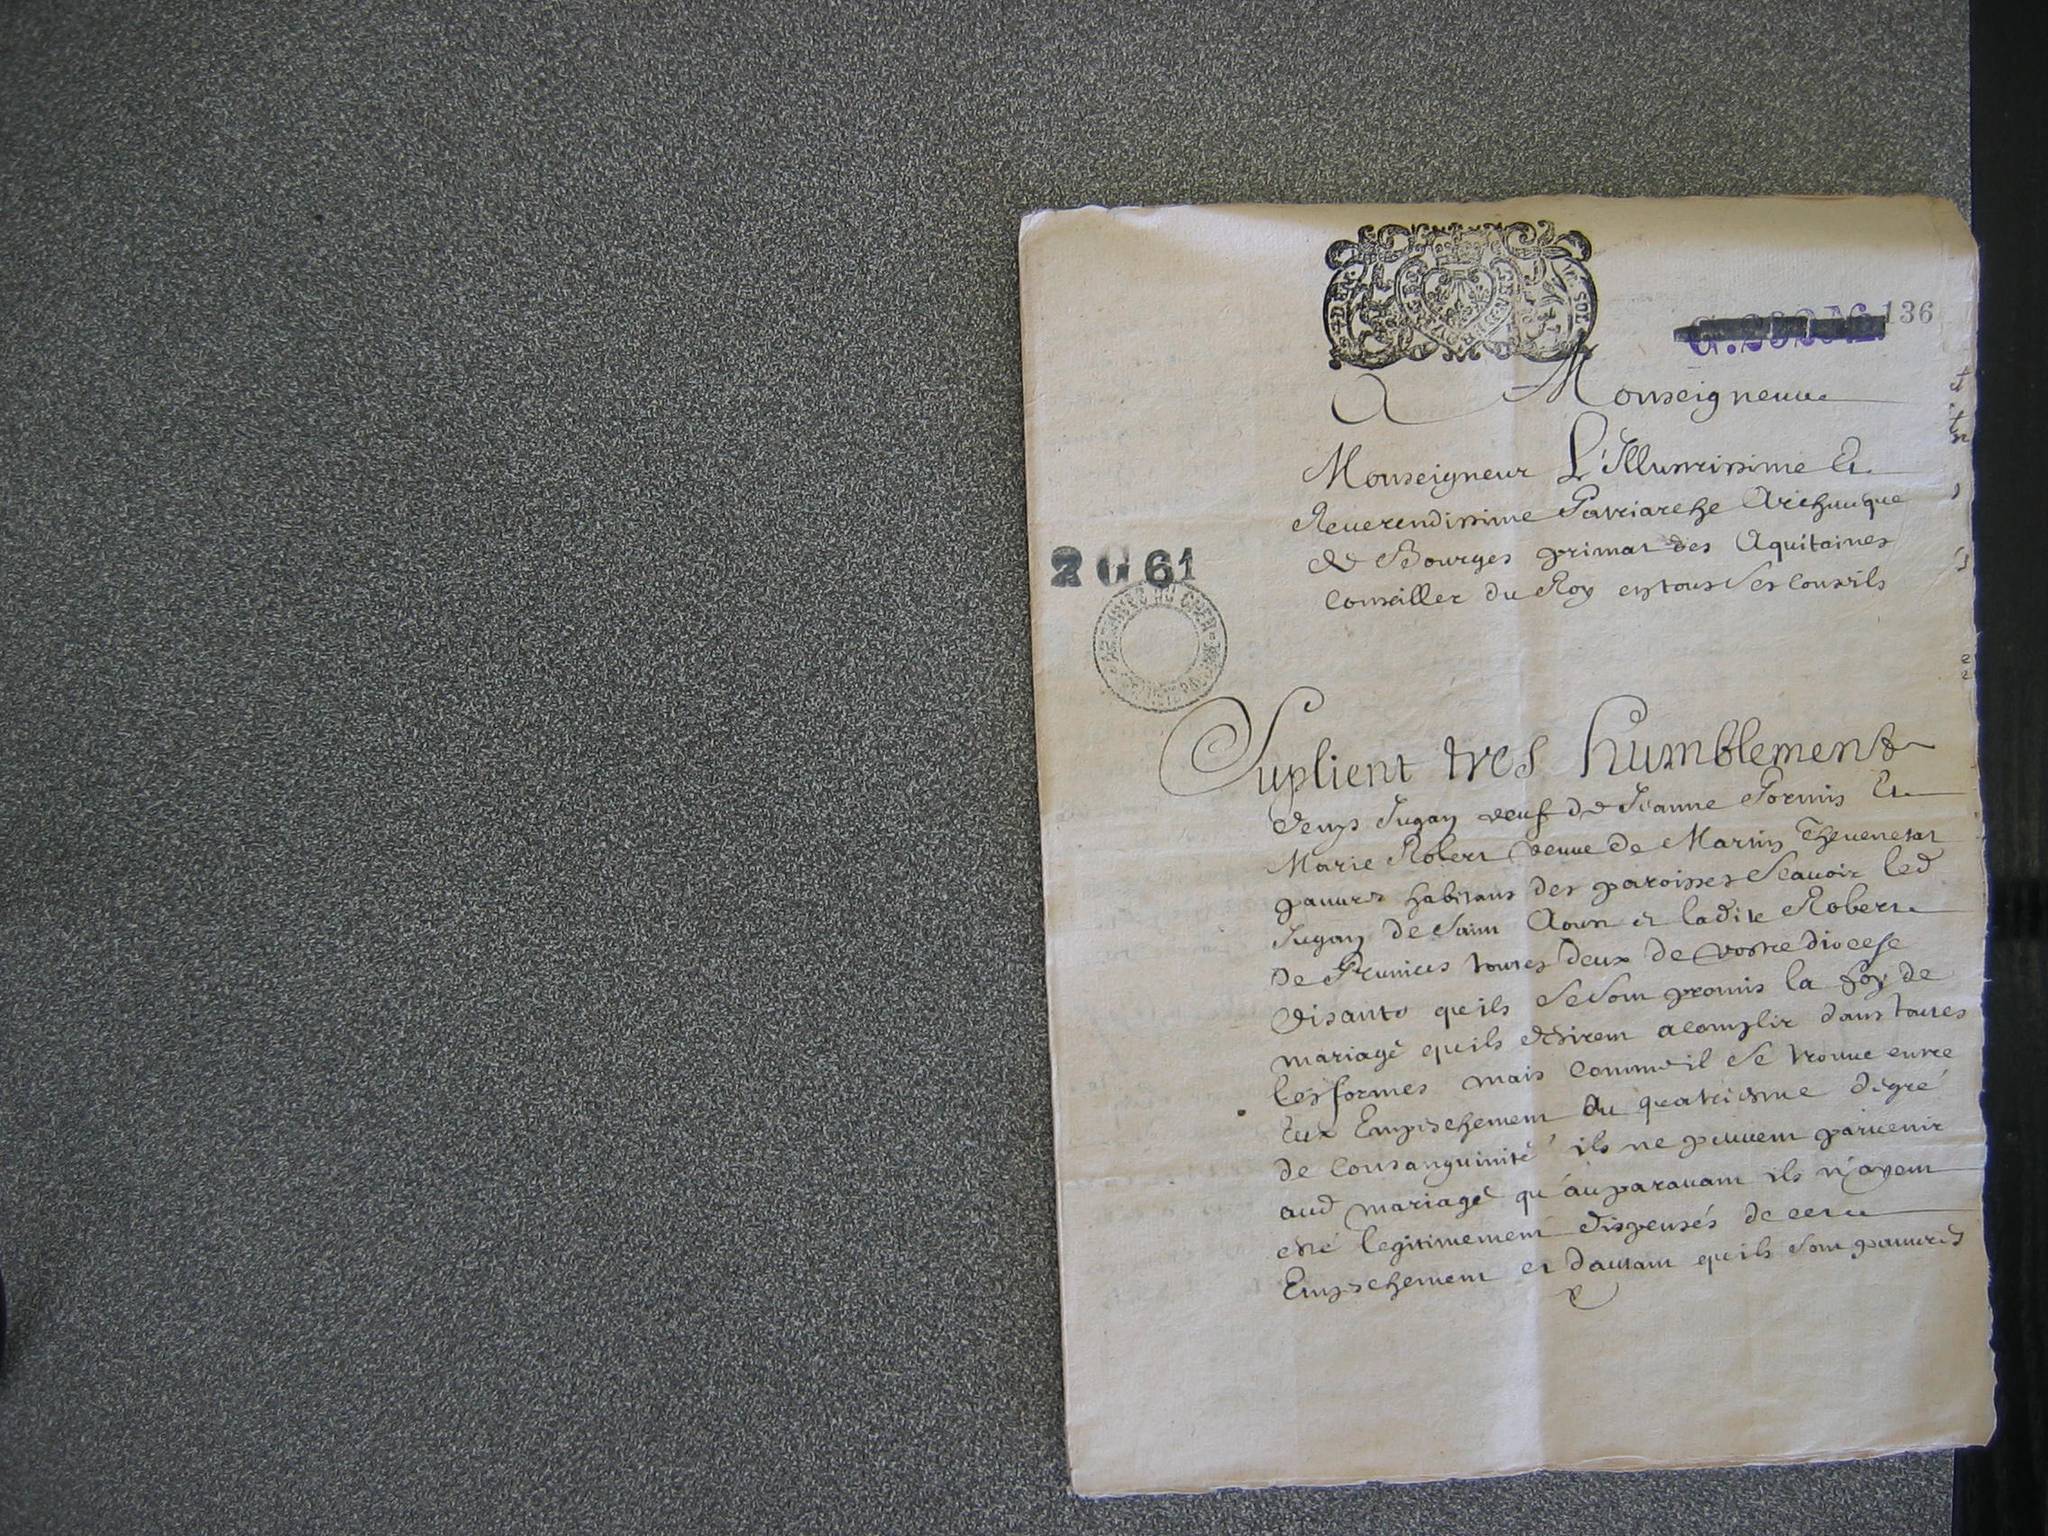 136
A Monseigneur
Monseigneur L'Illustrissime Et
Reuerendissime Patriarche Archeuesque
de Bourges primat des Aquitaines
Conseiller du Roy en tous ses Conseils
2 G 61
ARCHIVES DU CHER
Suplient tres humblement
denys Jugan veuf de Jeanne Et
Marie Robert veuue de Martin Theuenetat
pauures habitans des paroisses Scauoir led
Jugan de Saint Aout et ladite Robert
de Pruniers toutes deux de vostre diocese
disants qu'ils se sont promis la foy de
mariage qu'ils desirent acomplir dans toutes
les formes mais comme il se trouue entre
Eux Empeschement du quatriesme degré
de Consanguinité ils ne peuuent paruenir
aud mariage qu'auparauant ils n'ayent
esté legitimement dispensés de cet
Empeschement et dautant qu'ils sont pauures